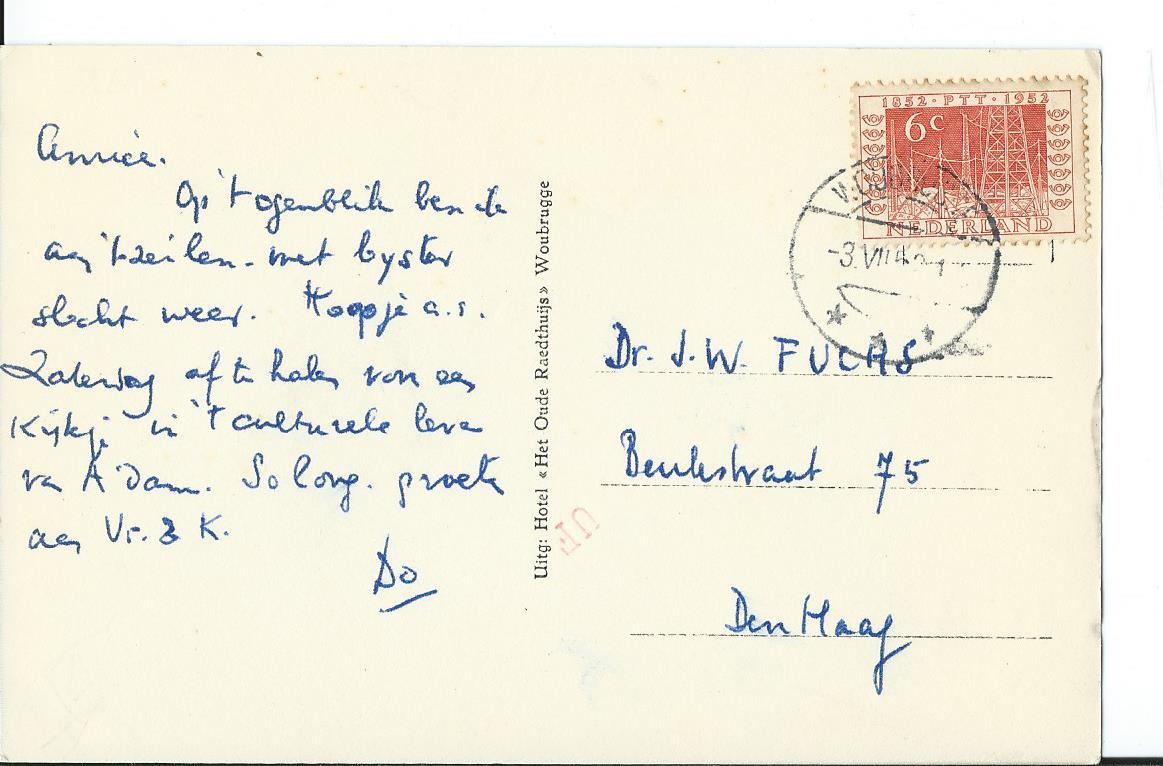 Amice.
Op 't ogenblik ben ik
aan 't zeilen - met byster
slecht weer. Hoop je a.s.
Zaterdag af te halen voor een
Kijkje in 't culturele leven
van A'dam. So long. groeten
aan Vr. & K.
Do
Uitg: Hotel «Het Oude Raedthuijs» Woubrugge
1852 · PTT · 1952
6c
NEDERLAND
-3.VII
Dr. J.W. FUCHS
Beukstraat 75
Den Haag
UF